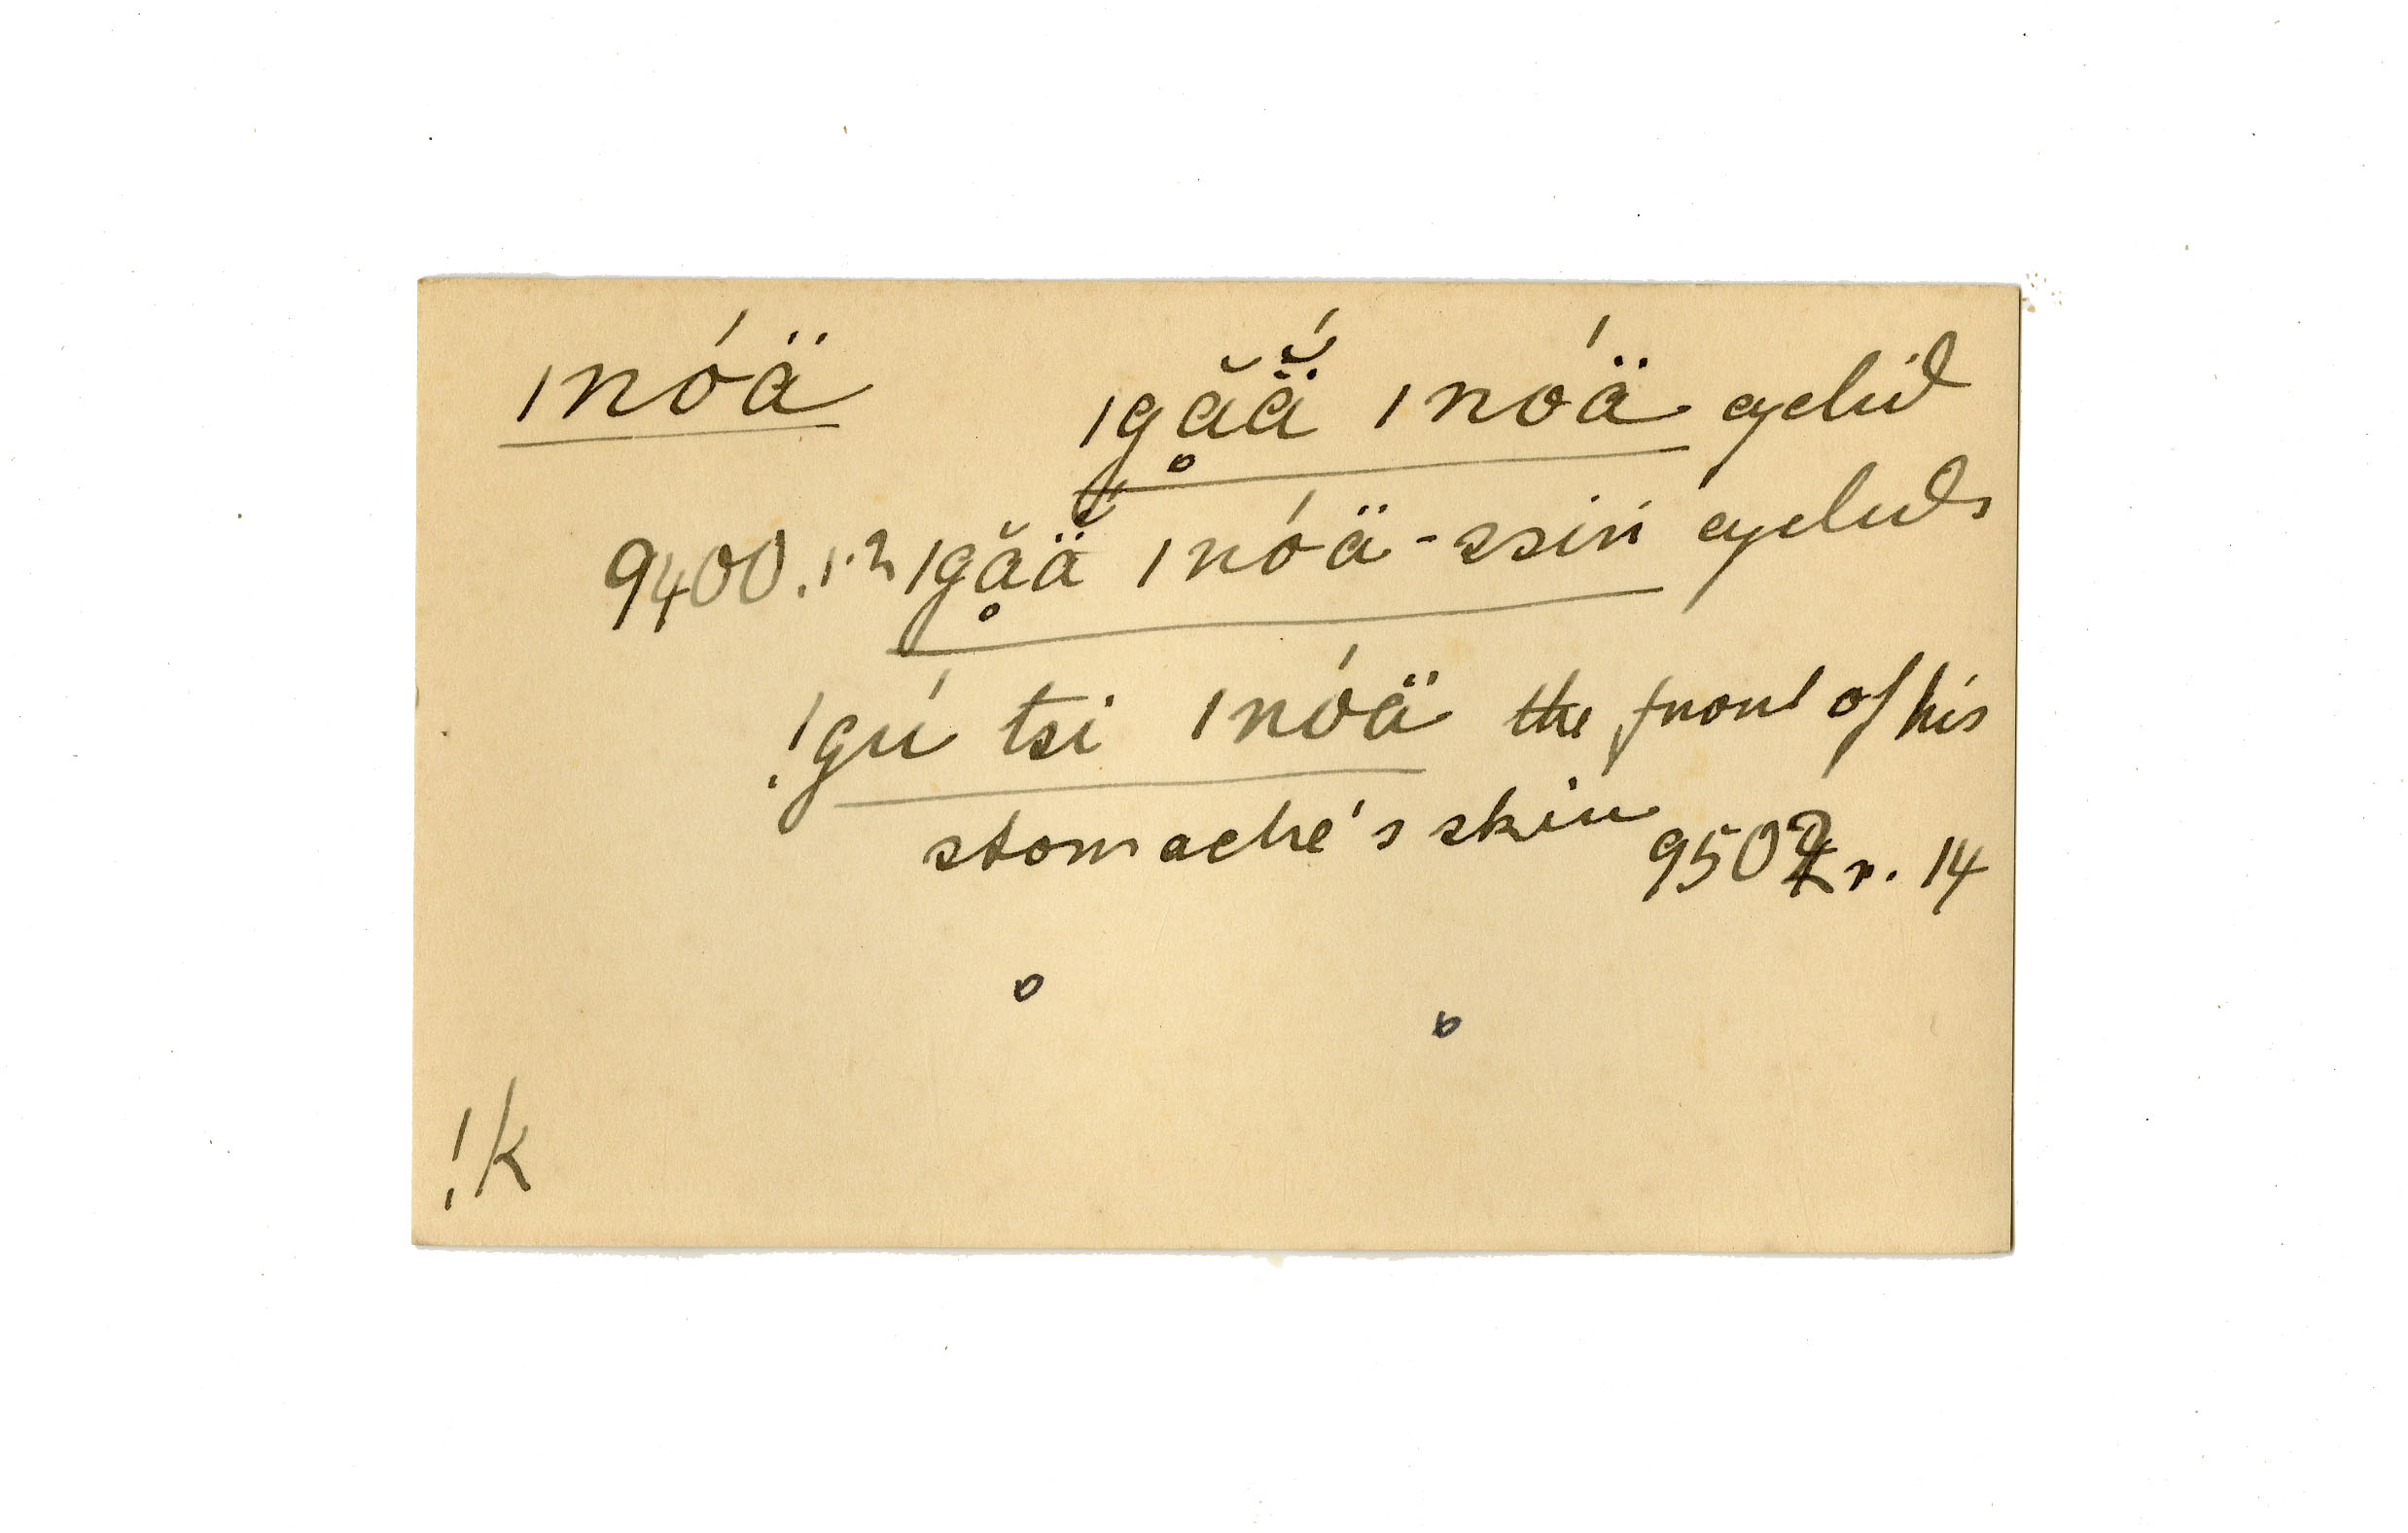 ǀnóä ǀgḁ̆ä̆́ ǀnóä eyelid
9400. r. ǀgḁ̆ä̆́ ǀnóä-ssiń eyelids
!gú tsi ǀnóä the front of his
stomache's skin 950 r. 14
!k